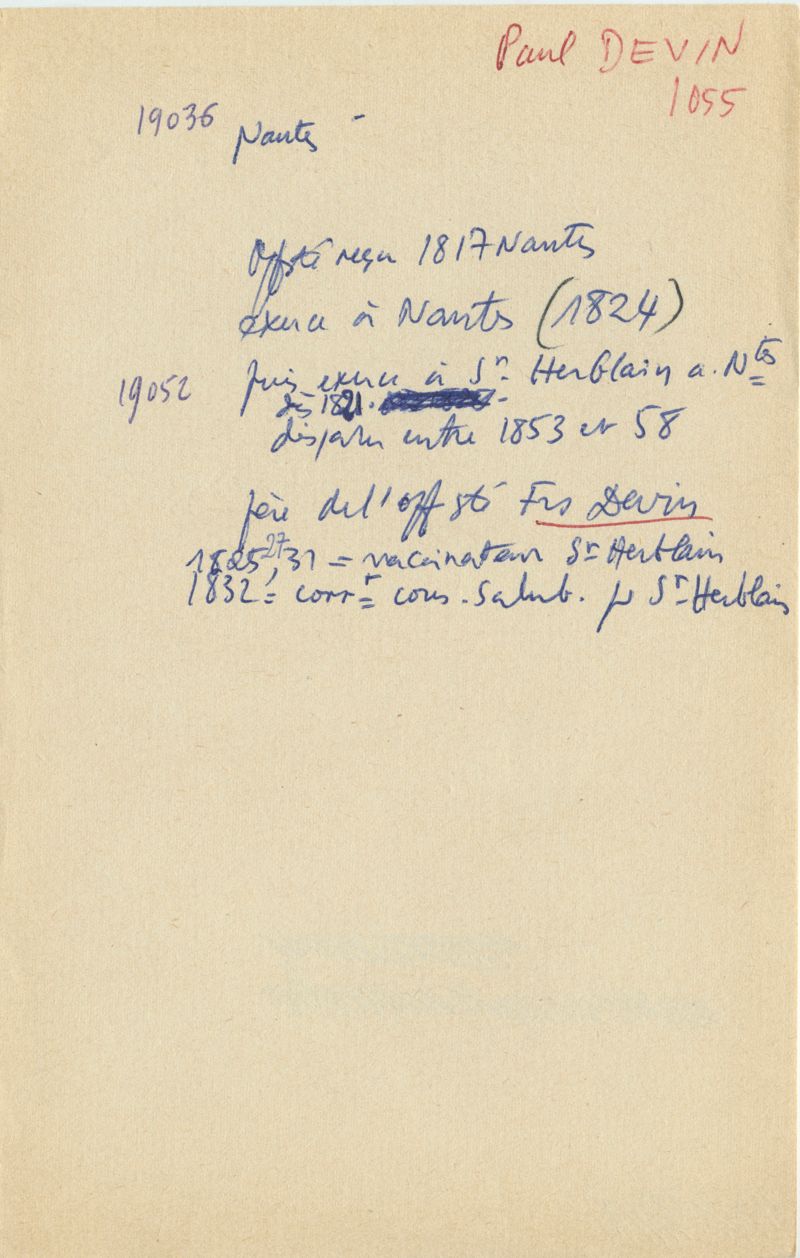 Paul DEVIN
1055
19036 Nantes -
Offsté reçu 1817 Nantes
exerce à Nantes (1824)
19052 puis exerce à St Herblain a. Ntes
dès 1821.
disparu entre 1853 et 58
père de l'offsté Frs Devin
1825, 27, 31 = vaccinateur St Herblain
1832 = corrt cons. Salub. pr St-Herblain